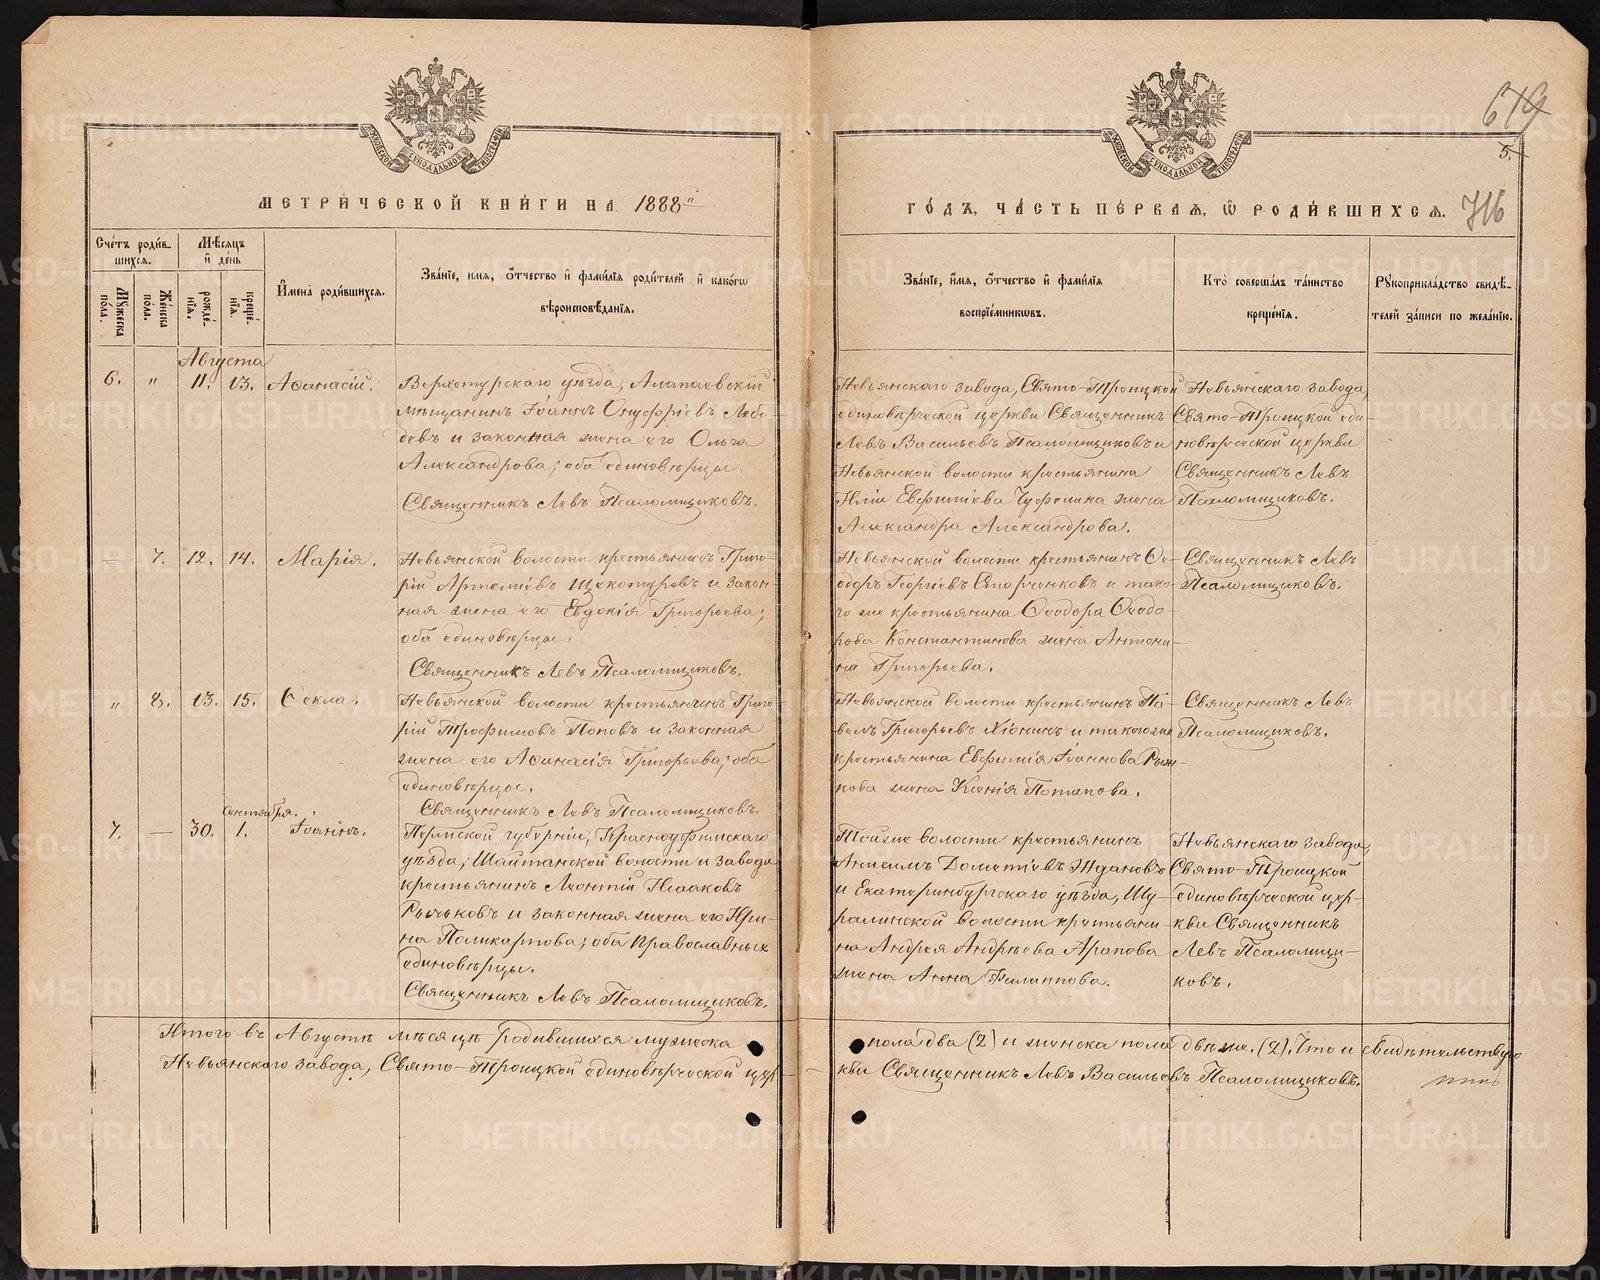 619
5.
МЕТРИ́ЧЕСКОЙ КНИ́ГИ НА 1888й
ГО́ДЪ, ЧА́СТЬ ПЕ́РВАѦ, Ѡ҆ РОДИ́ВШИХСѦ. 716
Сче́тъ роди́в-
шихсѧ.
Мѣ́сѧцъ
и҆ де́нь
Мꙋ́жеска
по́ла.
Же́нска
по́ла.
рожде́-
нїѧ.
креще́-
нїѧ.
И҆мена̀ роди́вшихсѧ.
Зва́нїе, имѧ, ѻ҆́тчество и҆ фами́лїѧ роди́телей и҆ како́гѡ
вѣроисповѣ́данїѧ.
Зва́нїе, и҆́мѧ, ѻ҆́тчество и҆ фами́лїѧ
воспрїе́мникѡвъ.
Кто̀ соверша́лъ та́инство
креще́нїѧ.
Рꙋкоприкла́дство свидѣ́-
телей за́писи по жела́нїю.
Августа
6. „ 11. 13. Аѳанасій.
Верхотурскаго уѣзда, Алапаевскій
мѣщанинъ Іоаннъ Онуфріевъ Лебе-
девъ и законная жена его Ольга
Александрова; оба единовѣрцы.
Священникъ Левъ Псаломщиковъ.
Невьянскаго завода, Свято-Троицкой
единовѣрческой церкви Священникъ
Левъ Васильевъ Псаломщиковъ и
Невьянской волости крестьянина
Иліи Евфиміева жена
Александра Александрова.
Невьянскаго завода,
Свято-Троицкой еди-
новѣрческой церкви
Священникъ Левъ
Псаломщиковъ.
— 7. 12. 14. Марія.
Невьянской волости крестьянинъ Григо-
рій Артеміевъ Щекотуровъ и закон-
ная жена его Евдокія Григорьева;
оба единовѣрцы.
Священникъ Левъ Псаломщиковъ.
Невьянской волости крестьянинъ Ѳе-
одоръ и тако-
го же крестьянина Ѳеодора Ѳеодо-
рова Константинова жена Антони-
на Григорьева.
Священникъ Левъ
Псаломщиковъ.
„ 8. 13. 15. Ѳекла.
Невьянской волости крестьянинъ Григо-
рій Трофимовъ Поповъ и законная
жена его Аѳанасія Григорьева; оба
единовѣрцы.
Священникъ Левъ Псаломщиковъ.
Невьянской волости крестьянинъ Па-
велъ Григорьевъ и такого же
крестьянина Евфимія Іоаннова Рыж-
кова жена Ксенія Потапова.
Священникъ Левъ
Псаломщиковъ.
Сентября.
7. — 30. 1. Іоаннъ.
Пермской губерніи, Красноуфимскаго
уѣзда, Шайтанской волости и завода
крестьянинъ Леонтій Исааковъ
Рычковъ и законная жена его Ири-
на Поликарпова; оба Православные
единовѣрцы.
Священникъ Левъ Псаломщиковъ.
Той же волости крестьянинъ
Анисимъ Дометіевъ Ждановъ
и Екатеринбургскаго уѣзда, Шу-
ралинской волости крестьяни-
на Андрея Андрѣева Арапова
жена Анна Филиппова.
Невьянскаго завода,
Свято-Троицкой
единовѣрческой цер-
кви Священникъ
Левъ Псаломщи-
ковъ.
Итого въ Августѣ мѣсяцѣ родившихся мужеска пола два (2) и женска пола двѣ же. (2). Что и свидѣтельствую
Невьянскаго завода, Свято-Троицкой единовѣрческой цер- кви Священникъ Левъ Васильевъ Псаломщиковъ.